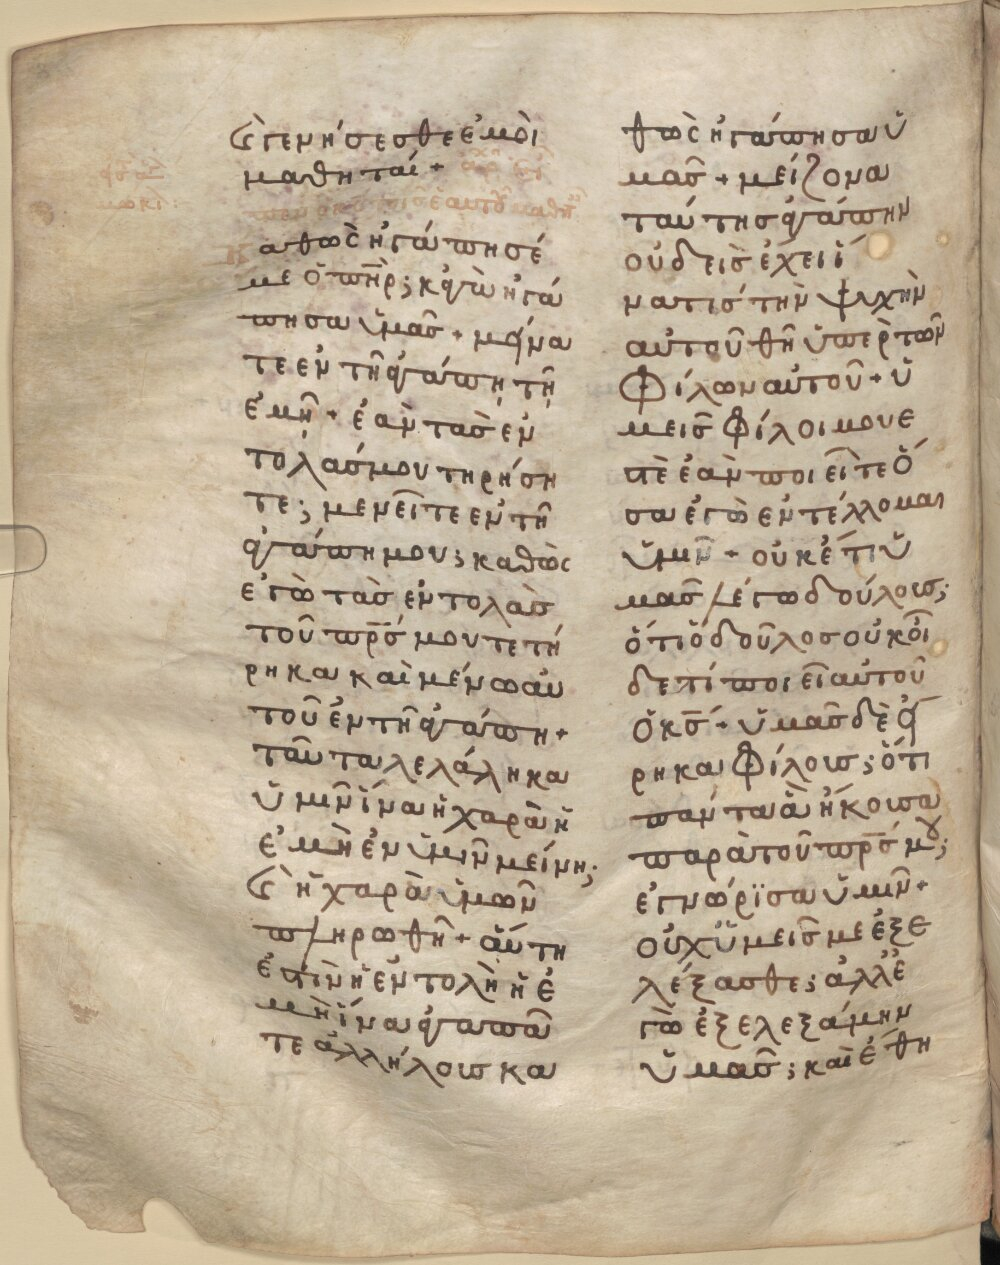 (ὲ γενήσεσθε ἐμοὶ
μαθηταί +
εἶπεν ὁ κς τοῖς ἑαυτοῦ μαθη
αθὼς ἠγάπησέ
με ὁ πηρ; κἀγὼ ἠγά
πησα ὑμᾶς + μείνα
τε ἐν τῆ ἀγάπη τῆ
ἐμῆ + ἐὰν τὰς ἐν
τολάς μου τηρήση
τε; μενεῖτε ἐν τῆ
ἀγάπη μου; καθὼς
ἐγὼ τὰς ἐντολὰς
τοῦ πρς μου τετή
ρηκα καὶ μένω αὐ
τοῦ ἐν τῆ ἀγάπη +
ταῦτα λελάληκα
ὑμῖν ἵνα ἡ χαρὰ ἡ
ἐμὴ ἐν ὑμῖν μείνη;
(ὲ ἡ χαρὰ ὑμῶν
πληρωθῆ + αὕτη
ἐστὶν ἡ ἐντολὴ ἡ ἐ
μὴ ἵνα ἀγαπᾶ
τε ἀλλήλους κα
θὼς ἠγάπησα ὑ
μᾶς + μείζονα
ταύτης ἀγάπην
οὐδεὶς ἔχει ἵ
να τις τὴν ψυχὴν
αὐτοῦ θῆ ὑπὲρ τῶν
φίλων αὐτοῦ + ὑ
μεῖς φίλοι μου ἐ
στὲ ἐὰν ποιεῖτε ὅ
σα ἐγὼ ἐντέλλομαι
ὑμῖν + οὐκέτι ὑ
μᾶς λέγω δούλους;
ὅτι ὁ δοῦλος οὐκ οἶ
δε τί ποιεῖ αὐτοῦ
ὁ κς + ὑμᾶς δὲ εἴ
ρηκα φίλους; ὅτι
πάντα ἃ ἤκουσα
παρὰ τοῦ πρς μου;
ἐγνώρϊσα ὑμῖν +
οὐχ ὑμεῖς με ἐξε
λέξασθε; ἀλλ ἐ
γὼ ἐξελεξάμην
ὑμᾶς; καὶ ἔθη